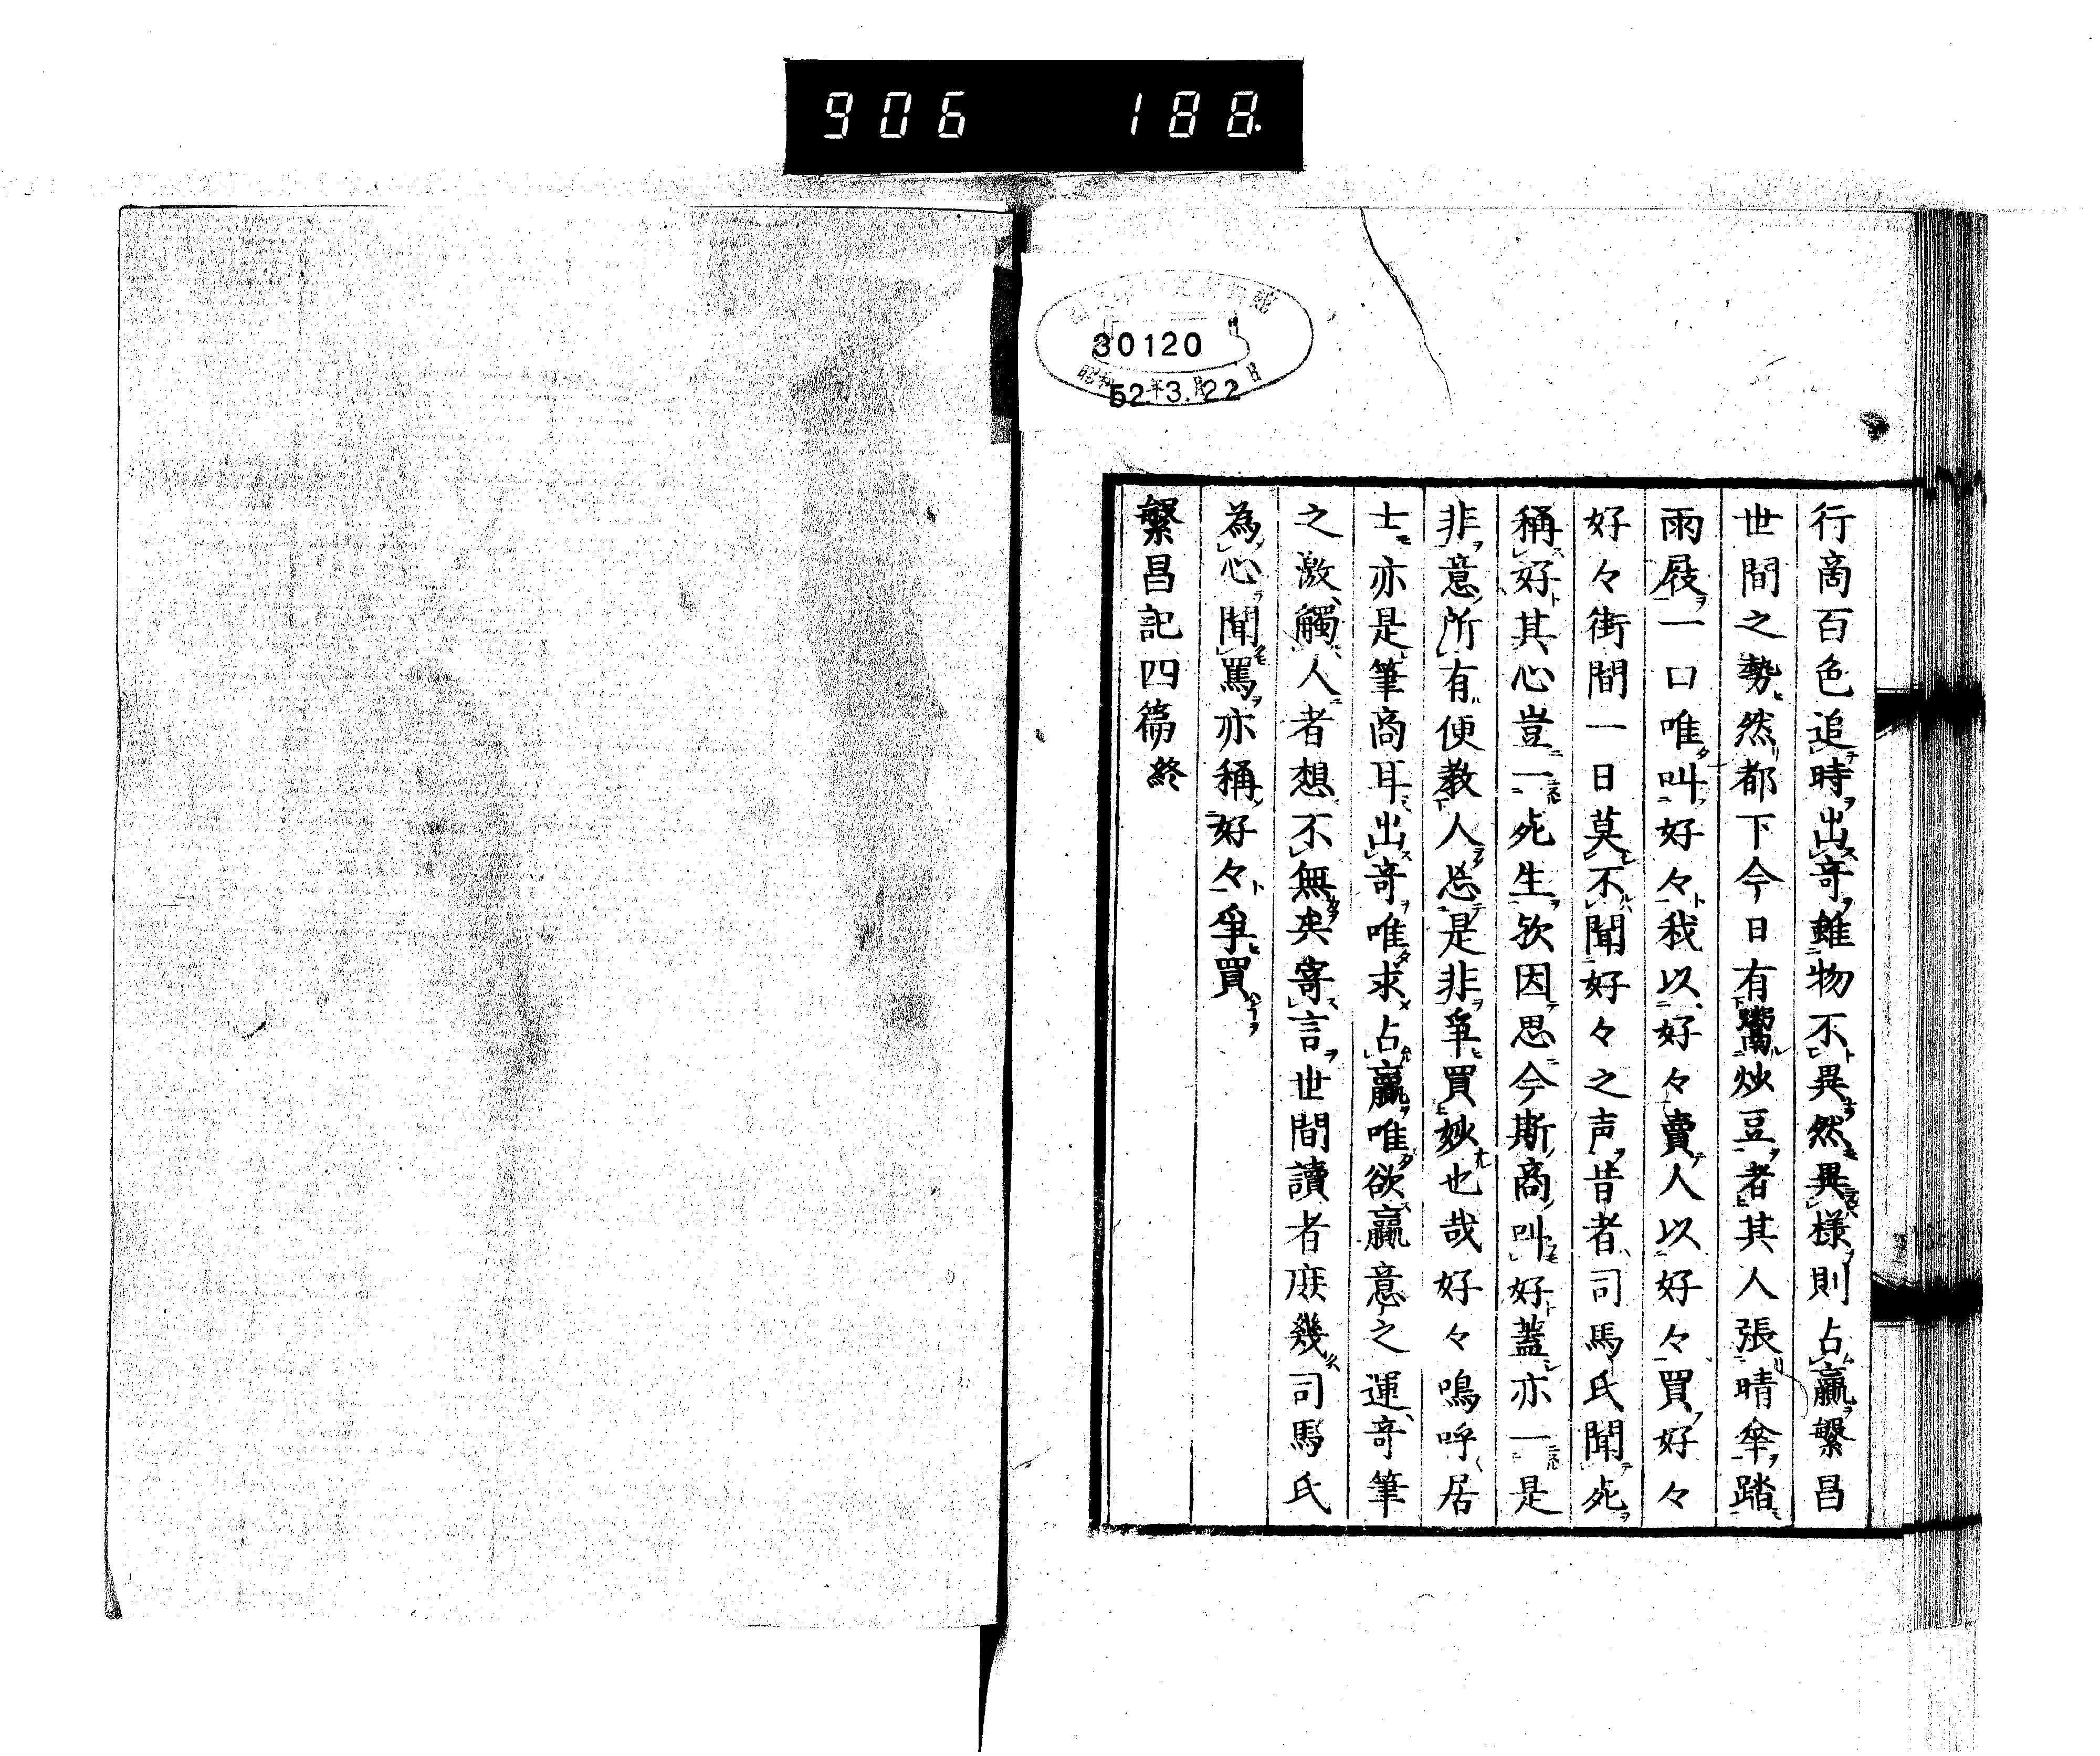 906 188.
30120
昭和52年3月22日
行商百色追時出奇雖物不異然異様則占贏繁昌
世間之勢然都下今日有鬻炒豆者其人張晴傘踏
雨屐一口唯叫好々我以好々賣人以好々買好々
好々街間一日莫不聞好々之声昔者司馬氏聞死
稱好其心豈一死生欤因思今斯商叫好蓋亦一是
非意所有便教人忘是非爭買妙也哉好々鳴呼居
士亦是筆商耳出奇唯求占贏唯欲贏意之運奇筆
之激觸人者想不無矣寄言世間讀者庶幾司馬氏
為心聞罵亦稱好々爭買
繁昌記四篇終